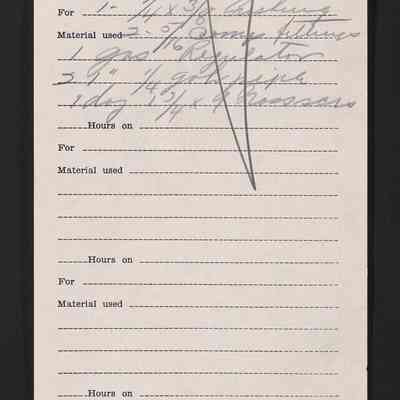 For 1- 1/4 x 3/8 Bushing
Material used 2- 5/16 fittings
1 gas Regulator
2 9" 1/4 galv pipe
1 doz 1 3/4 x 9
Hours on
For
Material used
Hours on
For
Material used
Hours on